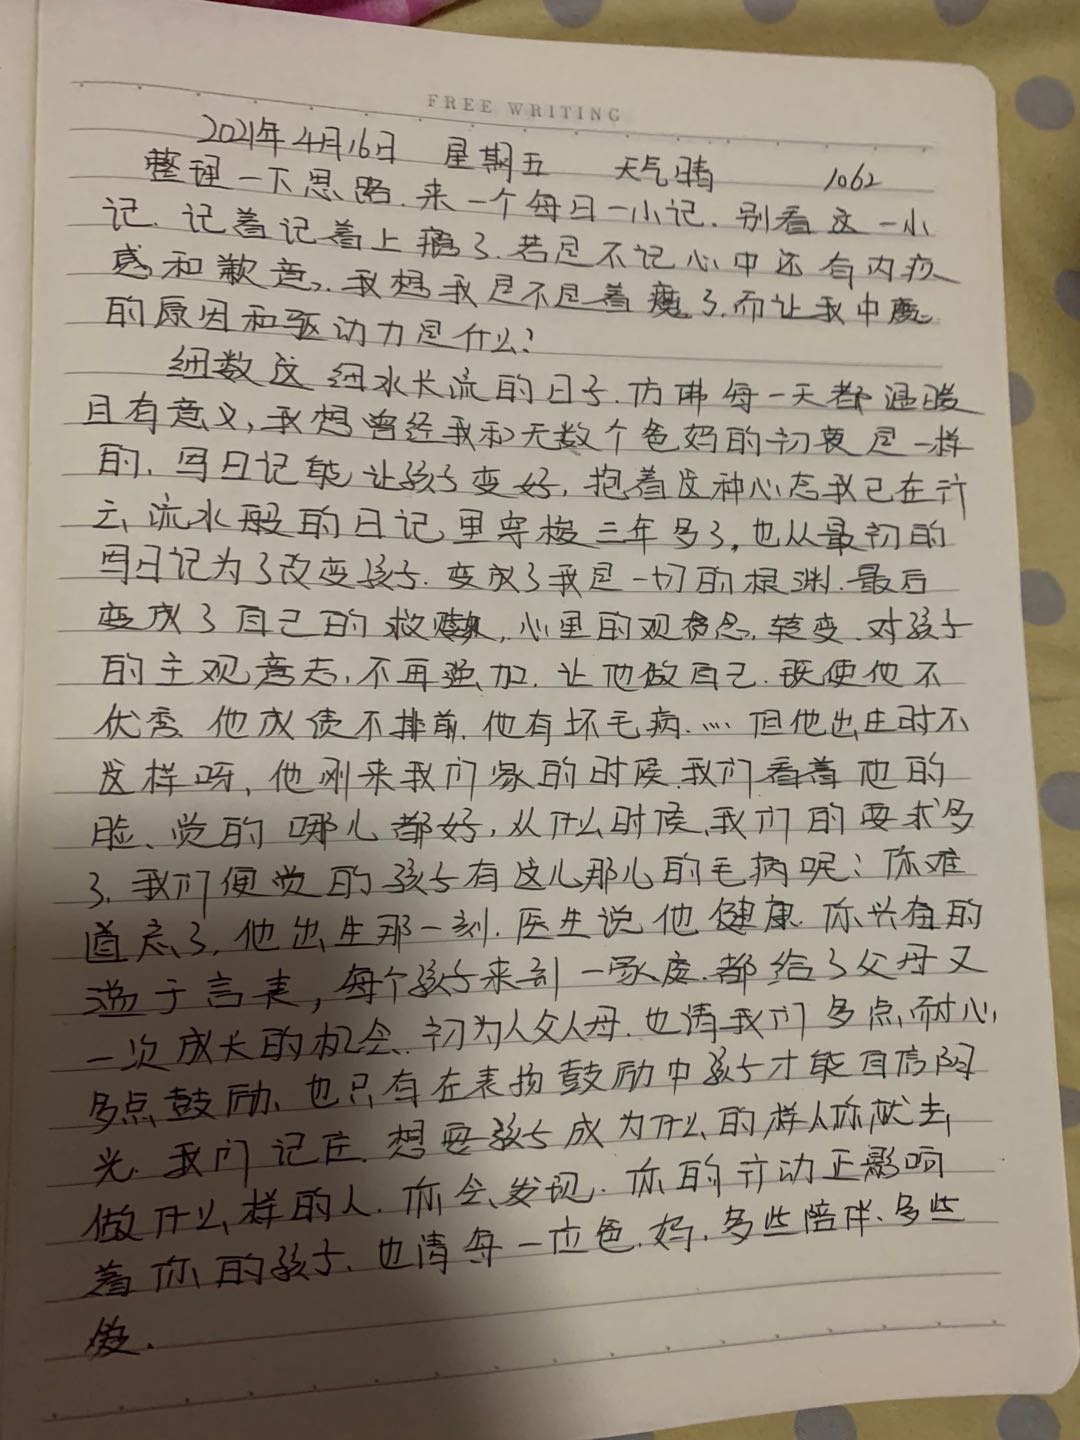 FREE WRITING
2021年4月16日 星期五 天气晴 1062
整理一下思路.来一个每日一小记.别看这一小
记.记着记着上瘾了.若是不记心中还有内疚
感和歉意.我想我是不是着魔了.而让我中魔
的原因和驱动力是什么?
细数这细水长流的日子.仿佛每一天都温暖
且有意义,我想曾经我和无数个爸妈的初衷是一样
的.写日记能让孩子变好,抱着这种心态我已在行
云流水般的日记里穿梭三年多了,也从最初的
写日记为了改变孩子.变成了我是一切的根渊.最后
变成了自己的救赎,心里的观念转变.对孩子
的主观意志,不再强加.让他做自己.既使他不
优秀 他成绩不排前.他有坏毛病……但他出庄时不
这样呀,他刚来我们家的时候我们看着他的
脸、觉的哪儿都好,从什么时候、我们的要求多
了.我们便觉的孩子有这儿那儿的毛病呢;你难
道忘了,他出生那一刻.医生说他健康.你兴奋的
溢于言表,每个孩子来到一家庭.都给了父母又
一次成长的机会.初为人父人母.也请我们多点耐心,
多点鼓励、也只有在表扬鼓励中孩子才能自信闪
光.我们记住.想要孩子成为什么的样人你就去
做什么样的人.你会发现.你的行动正影响
着你的孩子.也请每一位爸.妈.多些陪伴、多些
爱.